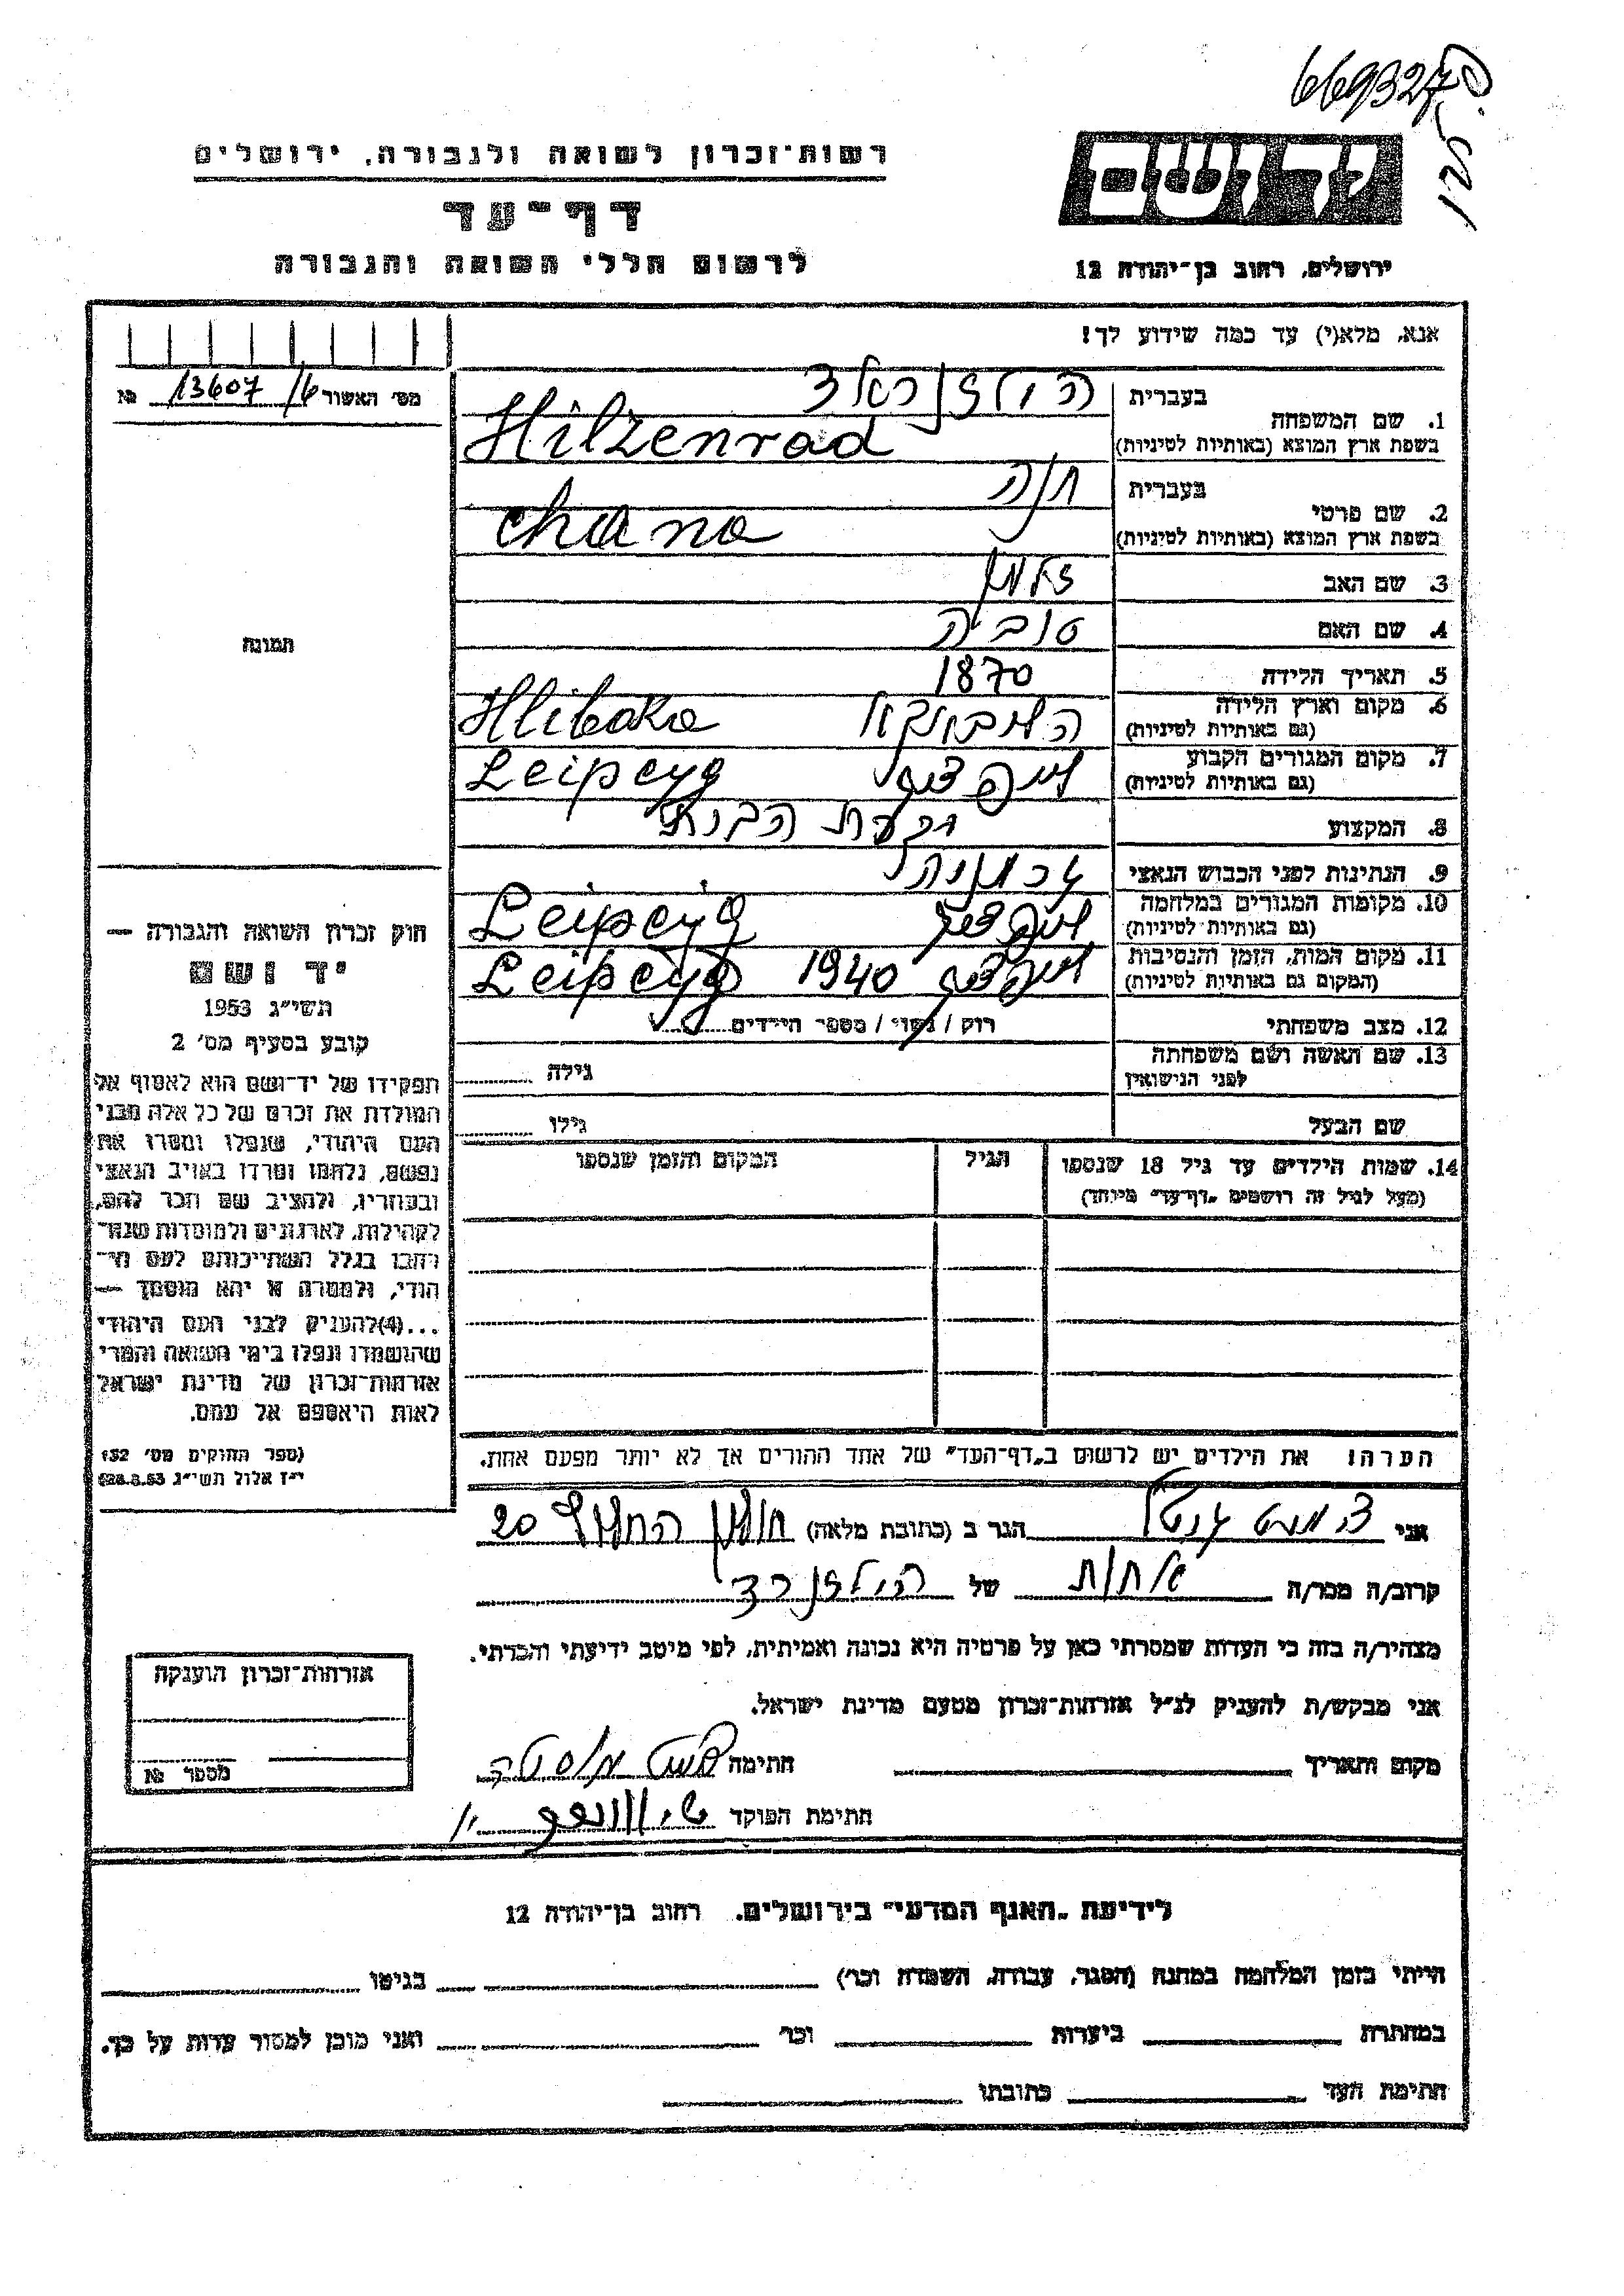 669327
רשות־זכרון לשואה ולגבורה, ירושלים
יד ושם
דף־עד
לרשום חללי השואה והגבורה
ירושלים, רחוב בן־יהודה 12
אנא, מלא(י) עד כמה שידוע לך!
מס' האשור 13607/6 №
1. שם המשפחה
בעברית
Hilzenrad
בשפת ארץ המוצא (באותיות לטיניות)
בעברית חנה
2. שם פרטי
chana
בשפת ארץ המוצא (באותיות לטיניות)
3. שם האב זלמן
4. שם האם טוביה
תמונה
5. תאריך הלידה 1870
6. מקום וארץ הלידה Hliboka
(גם באותיות לטיניות)
7. מקום המגורים הקבוע לייפציג Leipcyg
(גם באותיות לטיניות)
8. המקצוע עקרת הבית
9. הנתינות לפני הכבוש הנאצי גרמניה
10. מקומות המגורים במלחמה לייפציג Leipcyg
(גם באותיות לטיניות)
11. מקום המות, הזמן והנסיבות לייפציג 1940 Leipcyg
(המקום גם באותיות לטיניות)
12. מצב משפחתי רווק / נשוי / מספר הילדים
13. שם האשה ושם משפחתה
לפני הנישואין
גילה
שם הבעל
גילו
14. שמות הילדים עד גיל 18 שנספו
(מעל לגיל זה רושמים „דף־עד" מיוחד)
הגיל
המקום והזמן שנספו
חוק זכרון השואה והגבורה —
יד ושם
תשי״ג 1953
קובע בסעיף מס' 2
תפקידו של יד־ושם הוא לאסוף אל
המולדת את זכרם של כל אלה מבני
העם היהודי, שנפלו ומסרו את
נפשם, נלחמו ומרדו באויב הנאצי
ובעוזריו, ולהציב שם וזכר להם,
לקהילות, לארגונים ולמוסדות שנח־
רבו בגלל השתייכותם לעם הי־
הודי, ולמטרה זו יהא מוסמך —
...(4)להעניק לבני העם היהודי
שהושמדו ונפלו בימי השואה והמרי
אזרחות־זכרון של מדינת ישראל
לאות היאספם אל עמם.
(ספר החוקים מס' 132
י״ז אלול תשי״ג 28.8.53)
הערה: את הילדים יש לרשום ב„דף־העד" של אחד ההורים אך לא יותר מפעם אחת.
אני הגר ב (כתובת מלאה) 20
קרוב/ה מכר/ה של הילזנרד
מצהיר/ה בזה כי העדות שמסרתי כאן על פרטיה היא נכונה ואמיתית, לפי מיטב ידיעתי והכרתי.
אני מבקש/ת להעניק לנ״ל אזרחות־זכרון מטעם מדינת ישראל.
מקום ותאריך חתימה
חתימת הפוקד
אזרחות־זכרון הוענקה
מספר №
לידיעת „האגף המדעי" בירושלים, רחוב בן־יהודה 12
הייתי בזמן המלחמה במחנה (הסגר, עבודה, השמדה וכו') בגיטו
במחתרת ביערות וכו' ואני מוכן למסור עדות על כך.
חתימת העד כתובתו